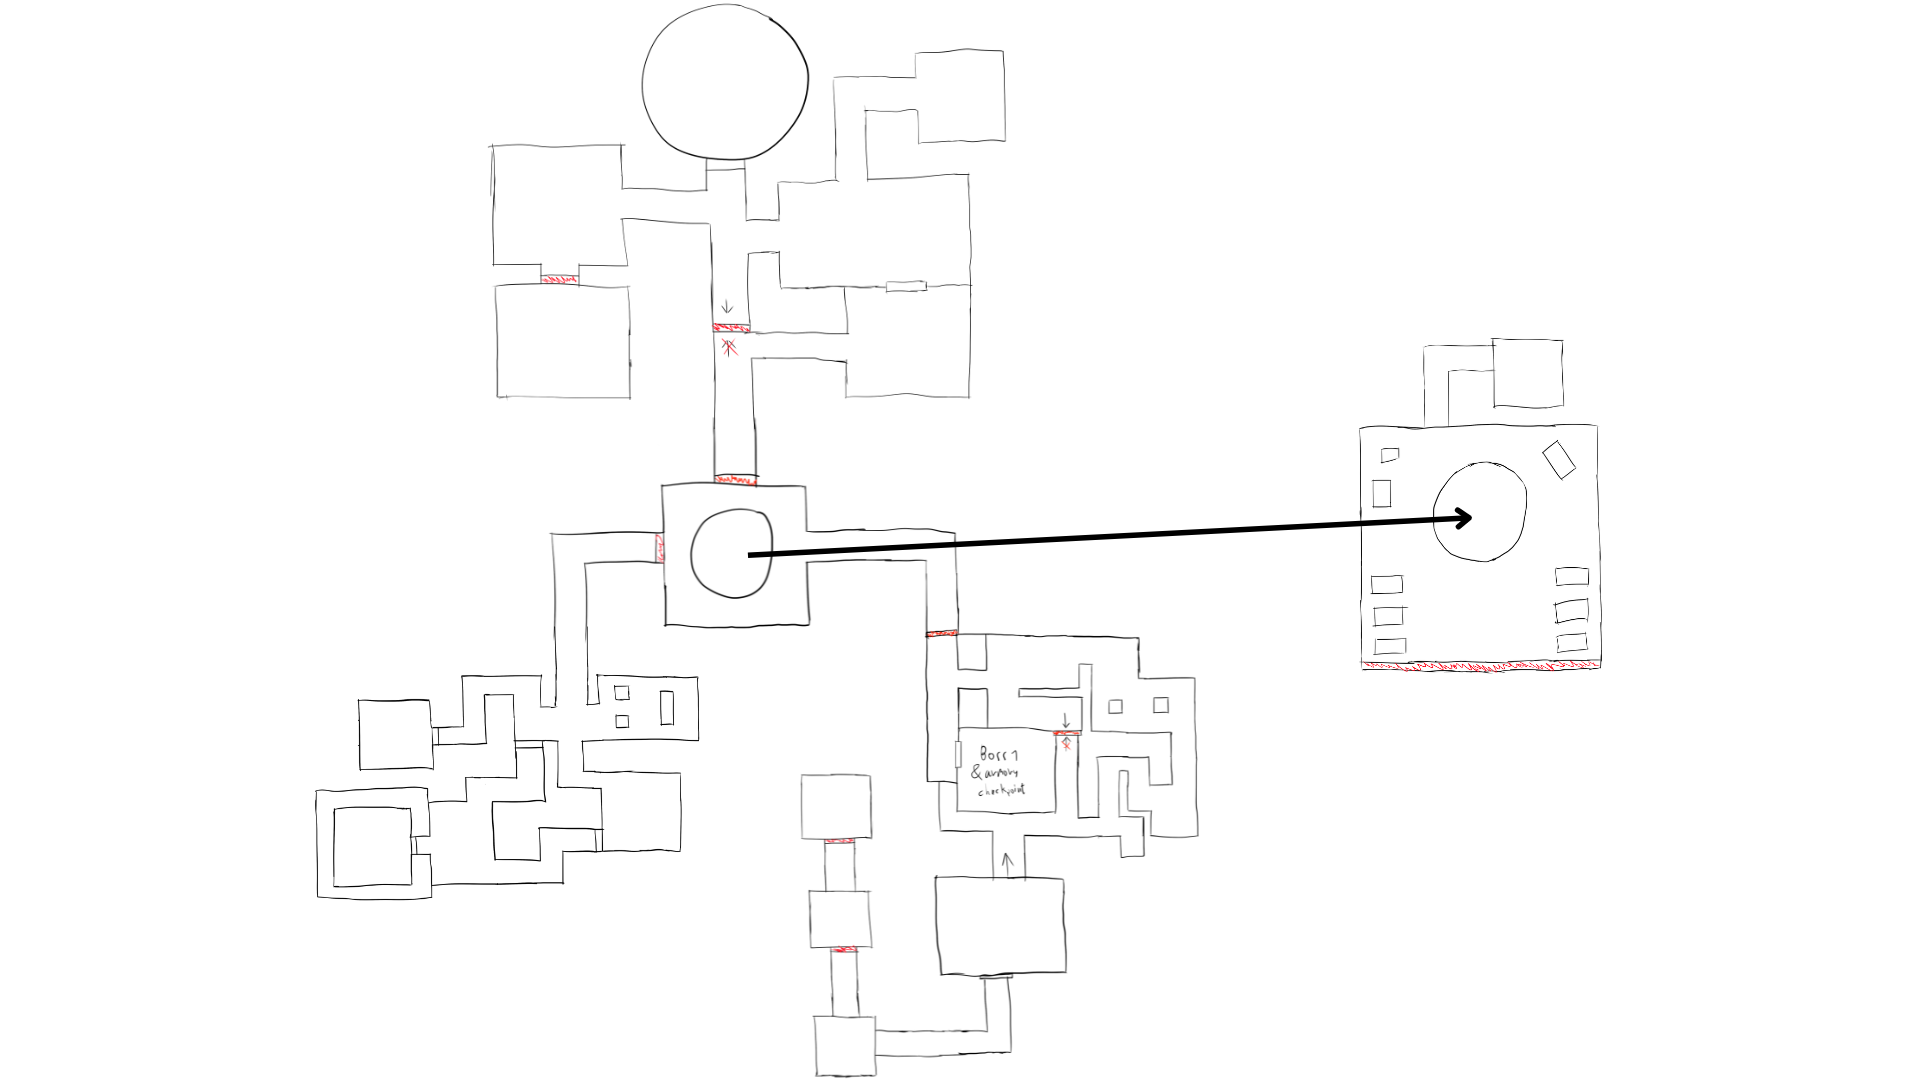 Boss 1
& armory
checkpoint